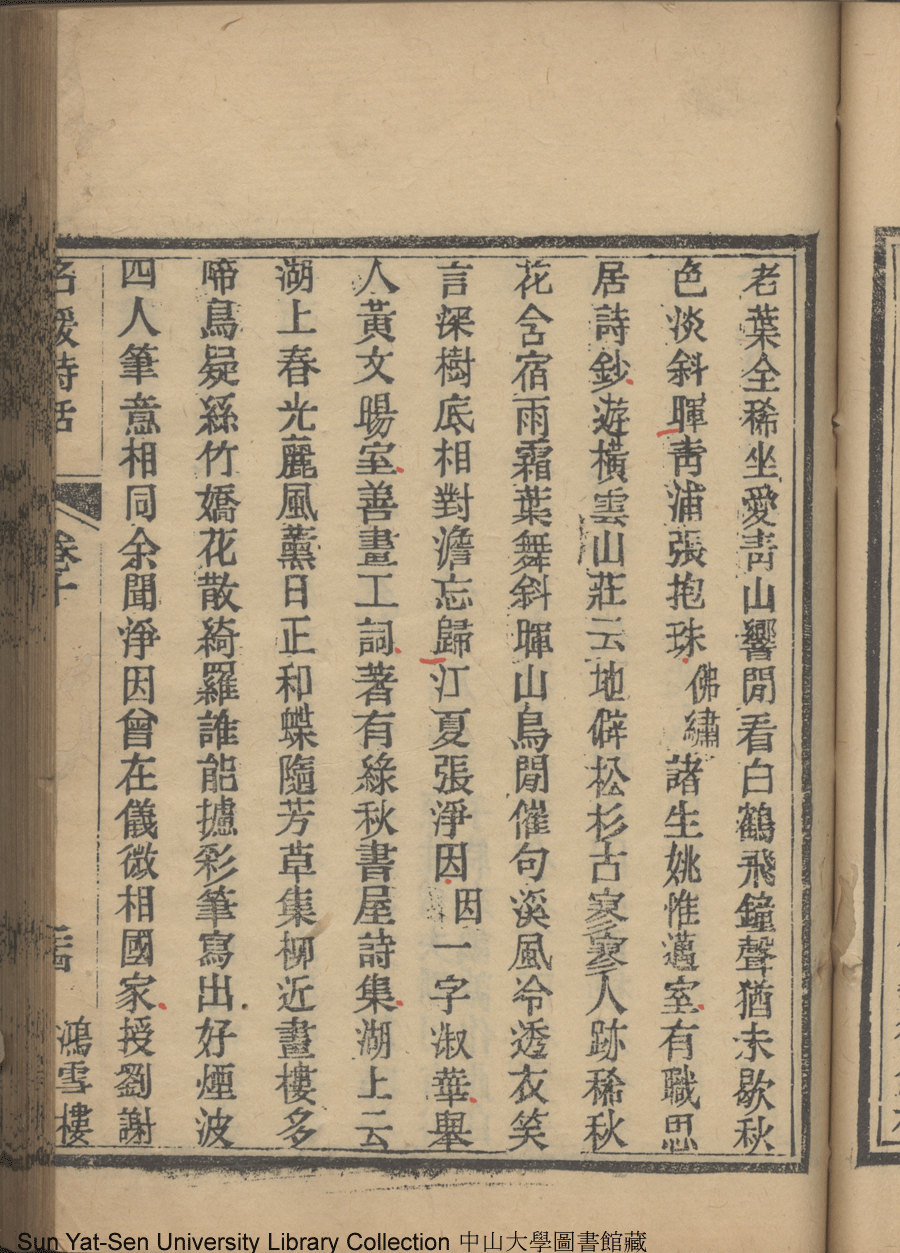 老葉全稀坐愛靑山響閒看白鶴飛鐘聲猶未歇秋
色淡斜暉靑浦張抱珠佛繡諸生姚惟邁室有職思
居詩鈔遊橫雲山莊云地僻松杉古寥寥人跡稀秋
花含宿雨霜葉舞斜暉山鳥閒催句溪風冷透衣笑
言深樹底相對澹忘歸江夏張淨因因一字淑華舉
人黃文暘室善畫工詞著有綠秋書屋詩集湖上云
湖上春光麗風薰日正和蝶隨芳草集柳近畫樓多
啼鳥疑絲竹嬌花散綺羅誰能攄彩筆寫出好煙波
四人筆意相同余聞淨因曾在儀徵相國家授劉謝
名媛詩話 卷十 鴻雪樓
Sun Yat-Sen University Library Collection 中山大學圖書館藏